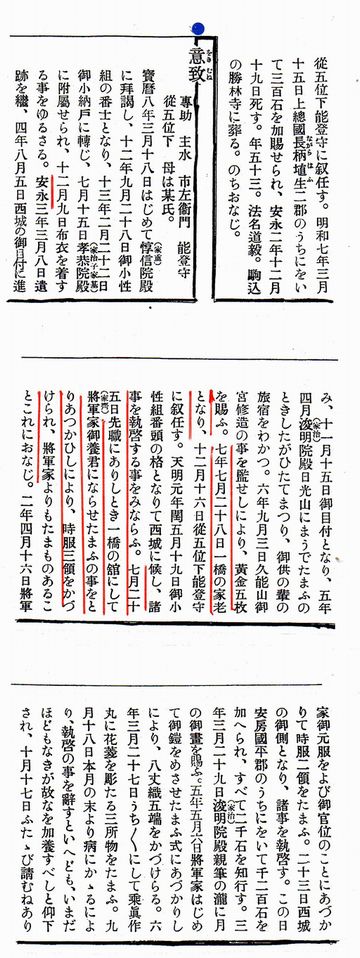 從五位下能登守に叙任す。明和七年三月
十五日上總國長柄埴生二郡のうちにをい
て三百石を加賜せられ、安永二年十二月
十九日死す。年五十三。法名道毅。駒込
の勝林寺に葬る。のちおなじ。
意致
專助 主水 市左衞門 能登守
從五位下 母は某氏。
寳曆八年三月十八日はじめて惇信院殿
に拜謁し、十二年九月二十八日御小性
組の番士となり、十三年二月二十二日
御小納戸に轉じ、七月十五日孝恭院殿
に附屬せられ、十二月九日布衣を着す
る事をゆるさる。安永三年三月八日遺
跡を繼、四年八月五日西城の御目付に進
み、十一月十五日御目付となり、五年
四月浚明院殿日光山にまうでたまふの
ときしたがひたてまつり、御供の輩の
旅宿をわかつ。六年九月三日久能山御
宮修造の事を監せしにより、黃金五枚
を賜ふ。七年七月二十八日一橋の家老
となり、十二月十六日從五位下能登守
に叙任す。天明元年閏五月十九日御小
性組番頭の格となりて西城に候し、諸
事を執啓する事をみならふ。七月二十
五日先職にありしとき一橋の舘にして
將軍家御養君にならせたまふの事をと
りあつかひしにより、時服三領をかづ
けられ、將軍家よりもたまものあるこ
とこれにおなじ。二年四月十六日將軍
家御元服をよび御官位のことにあづか
りて時服二領をたまふ。二十三日西城
の御側となり、諸事を執啓す。この日
安房國平郡のうちにをいて千二百石を
加へられ、すべて二千石を知行す。三
年三月二十九日浚明院殿親筆の瀧に月
の御畫を賜ふ。五年五月六日將軍家はじめ
て御鎧をめさせたまふ式にあづかりし
により、八丈織五端をかづけらる。六
年三月二十七日うち〱にして乘眞作
丸に花菱を彫たる三所物をたまふ。九
月十八日本月の末より病にかゝるによ
り、執啓の事を辭すといへども、いまだ
ほどもなきが故なを加養すべしと仰下
され、十月十七日ふたゝび請むねあり